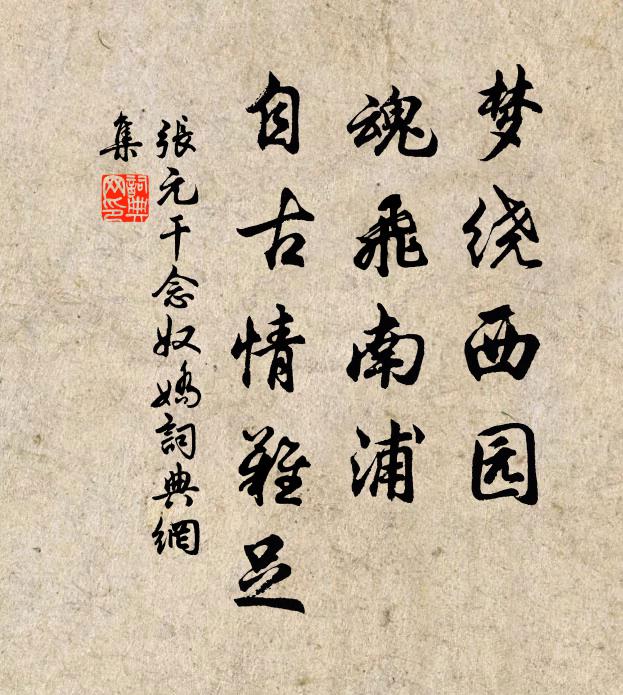 梦绕西园
魂飛南浦
自古情難足
張元干念奴嬌詞典網
集
詞典
网印